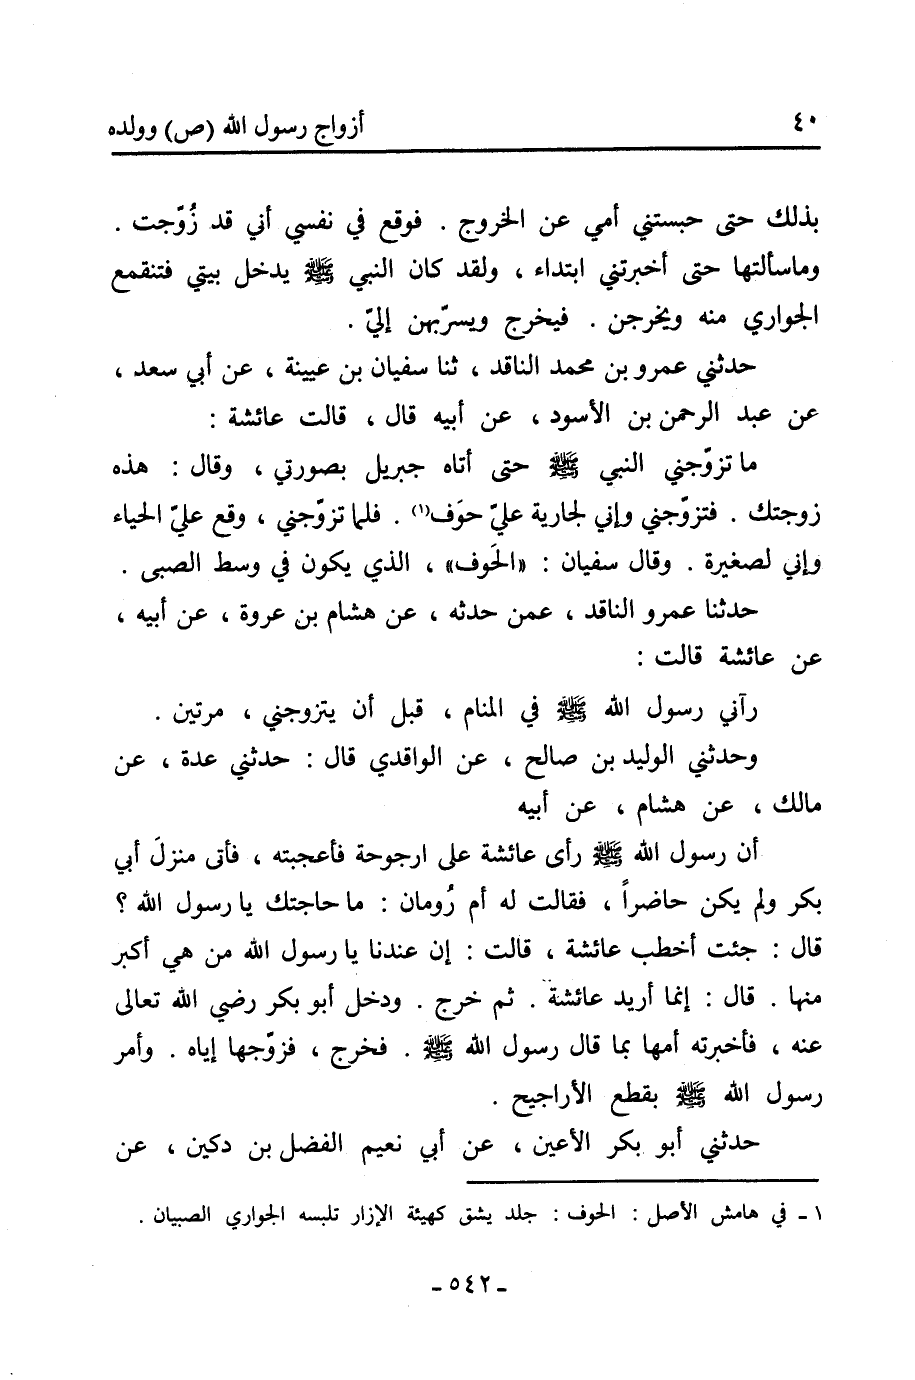 ٤٠ أزواج رسول الله (ص) وولده
بذلك حتى حبستني أمي عن الخروج . فوقع في نفسي أني قد زُوّجت .
وماسألتها حتى أخبرتني ابتداء ، ولقد كان النبي ﷺ يدخل بيتي فتنقمع
الجواري منه ويخرجن . فيخرج ويسرّبهن إليّ .
حدثني عمرو بن محمد الناقد ، ثنا سفيان بن عيينة ، عن أبي سعد ،
عن عبد الرحمن بن الأسود ، عن أبيه قال ، قالت عائشة :
ما تزوّجني النبي ﷺ حتى أتاه جبريل بصورتي ، وقال : هذه
زوجتك . فتزوّجني وإني لجارية عليّ حوَف(١) . فلما تزوّجني ، وقع عليّ الحياء
وإني لصغيرة . وقال سفيان : «الحَوف» ، الذي يكون في وسط الصبى .
حدثنا عمرو الناقد ، عمن حدثه ، عن هشام بن عروة ، عن أبيه ،
عن عائشة قالت :
رآني رسول الله ﷺ في المنام ، قبل أن يتزوجني ، مرتين .
وحدثني الوليد بن صالح ، عن الواقدي قال : حدثني عدة ، عن
مالك ، عن هشام ، عن أبيه
أن رسول الله ﷺ رأى عائشة على ارجوحة فأعجبته ، فأتى منزلَ أبي
بكر ولم يكن حاضراً ، فقالت له أم رُومان : ما حاجتك يا رسول الله ؟
قال : جئت أخطب عائشة ، قالت : إن عندنا يا رسول الله من هي أكبر
منها . قال : إنما أريد عائشة . ثم خرج . ودخل أبو بكر رضي الله تعالى
عنه ، فأخبرته أمها بما قال رسول الله ﷺ . فخرج ، فزوّجها إياه . وأمر
رسول الله ﷺ بقطع الأراجيح .
حدثني أبو بكر الأعين ، عن أبي نعيم الفضل بن دكين ، عن
١ ـ في هامش الأصل : الحوف : جلد يشق كهيئة الإزار تلبسه الجواري الصبيان .
ـ ٥٤٢ ـ